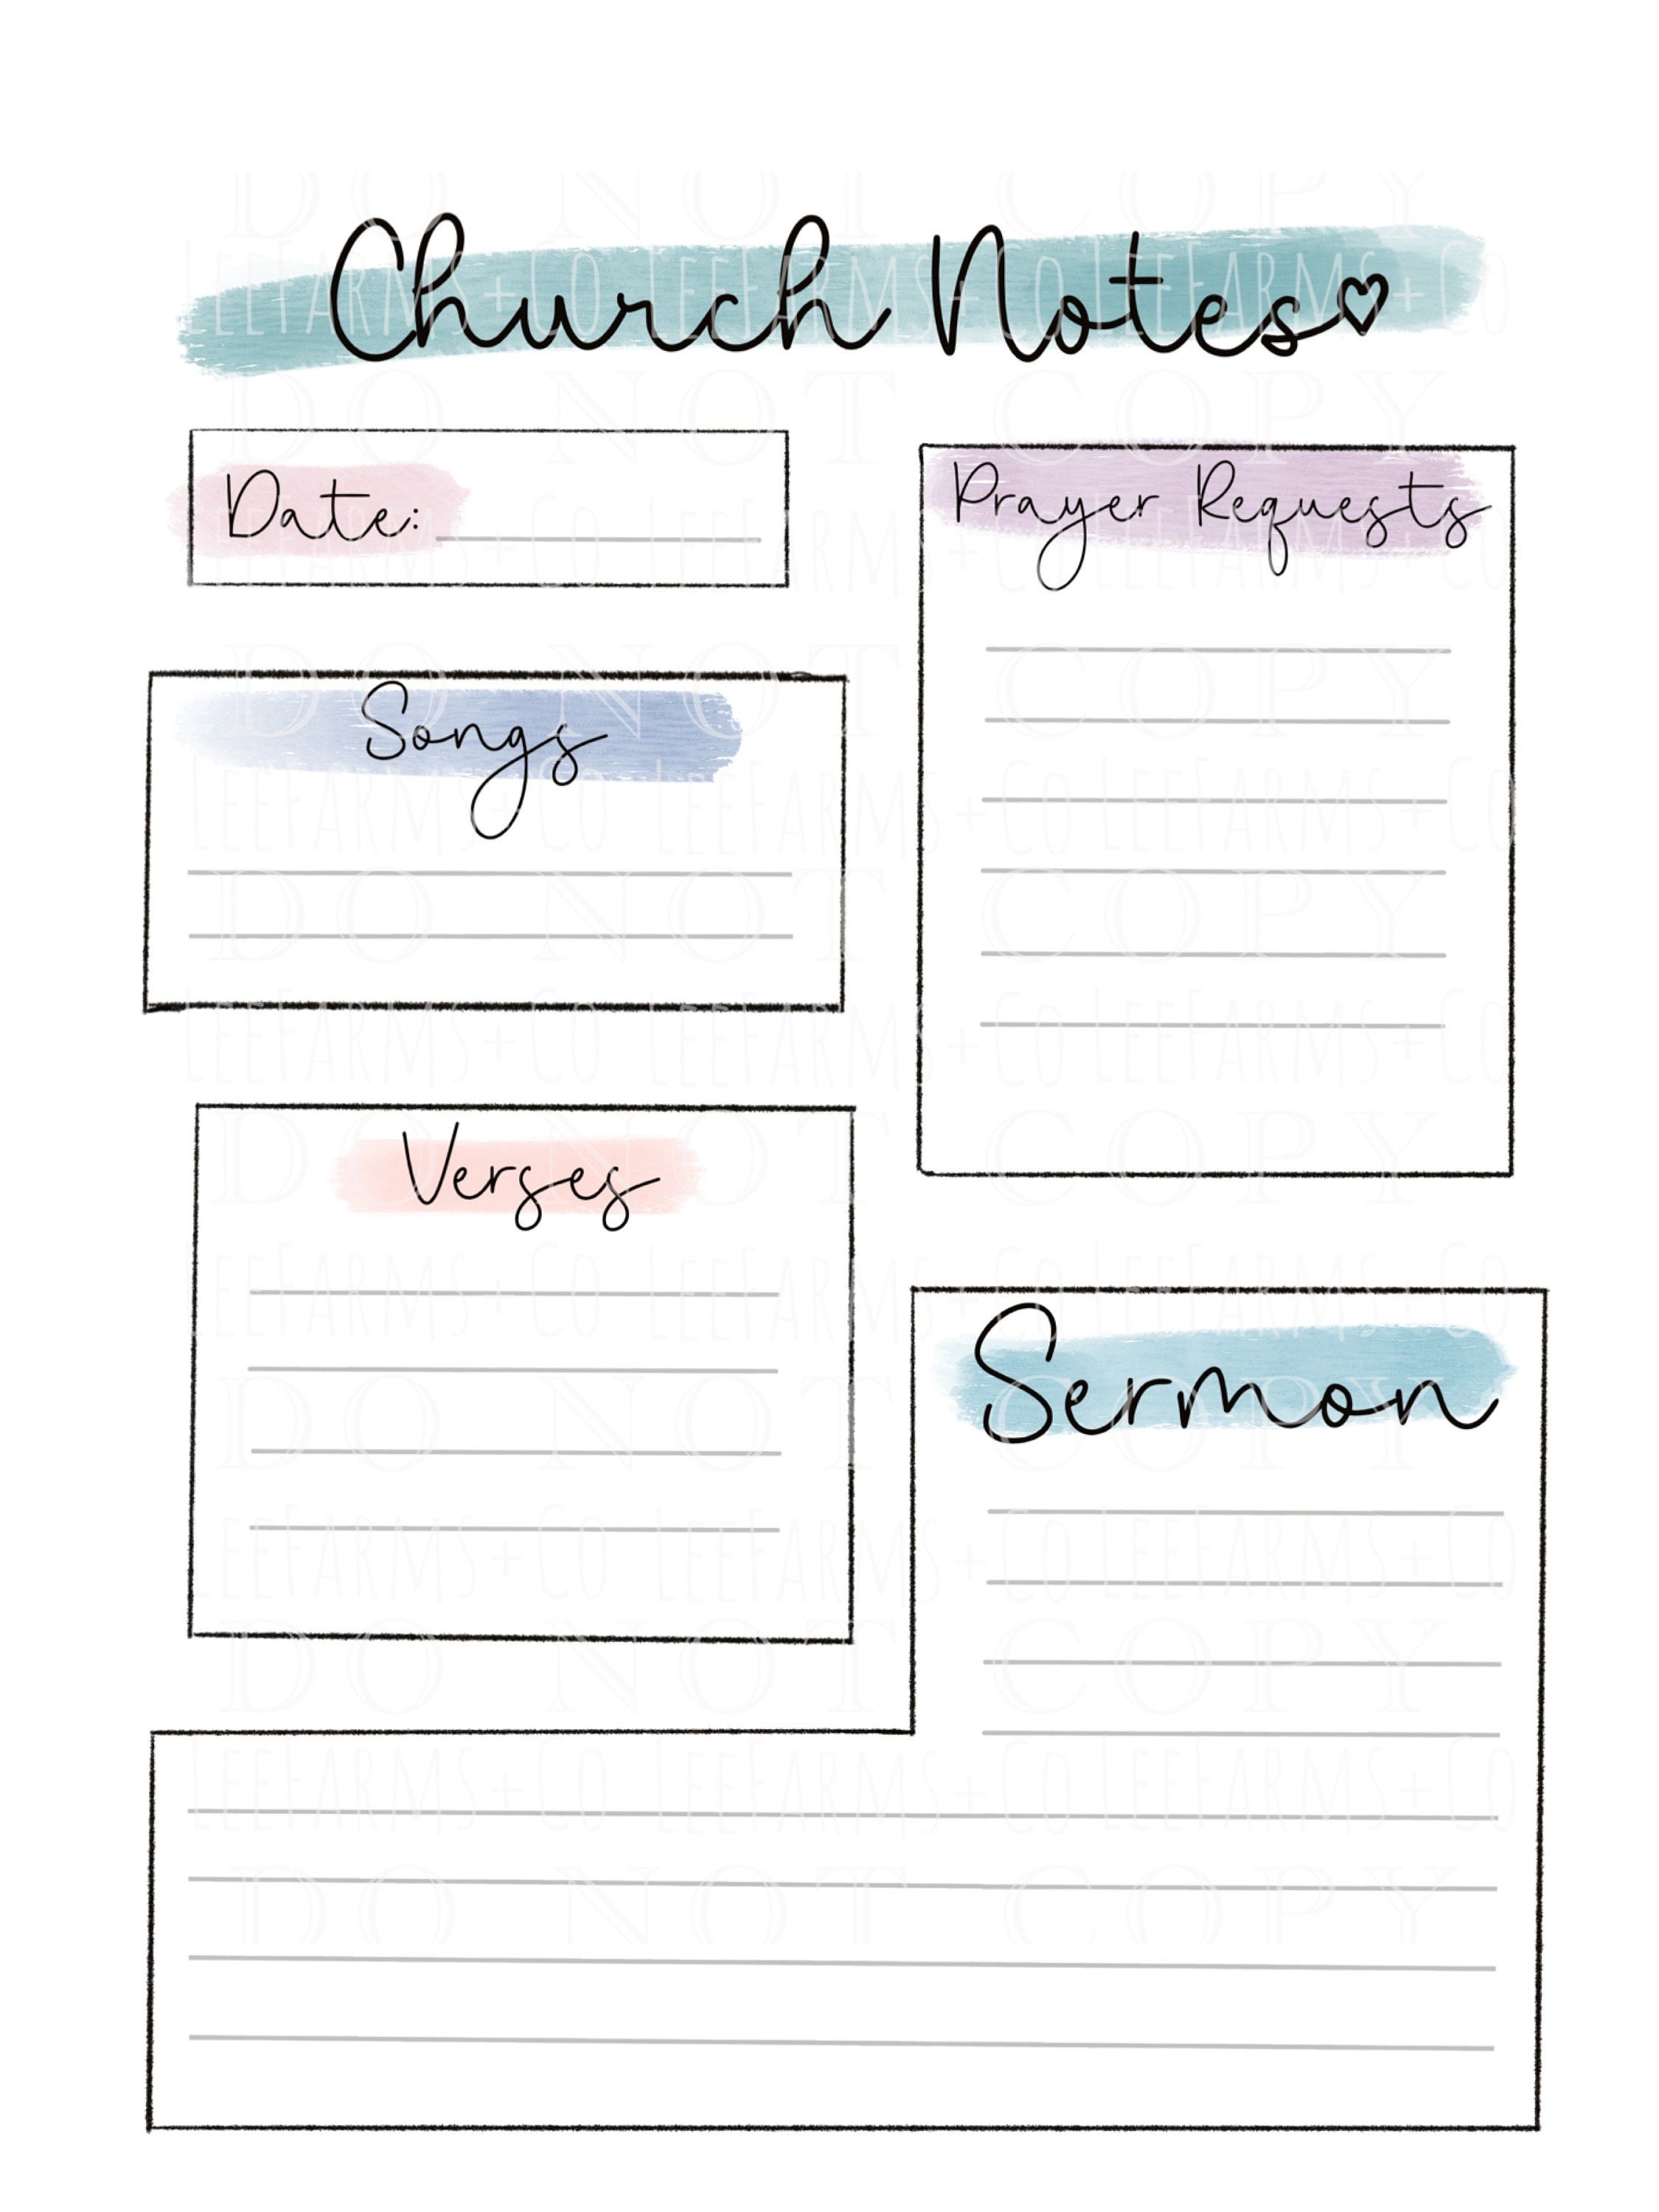 DO NOT COPY
Church Notes♡
LEEFARMS+CO LEEFARMS+CO LEEFARMS+CO
DO NOT COPY
Date:
Prayer Requests
LEEFARMS+CO LEEFARMS+CO LEEFARMS+CO
DO NOT COPY
Songs
LEEFARMS+CO LEEFARMS+CO LEEFARMS+CO
DO NOT COPY
LEEFARMS+CO LEEFARMS+CO LEEFARMS+CO
DO NOT COPY
Verses
LEEFARMS+CO LEEFARMS+CO LEEFARMS+CO
Sermon
DO NOT COPY
LEEFARMS+CO LEEFARMS+CO LEEFARMS+CO
DO NOT COPY
LEEFARMS+CO LEEFARMS+CO LEEFARMS+CO
DO NOT COPY